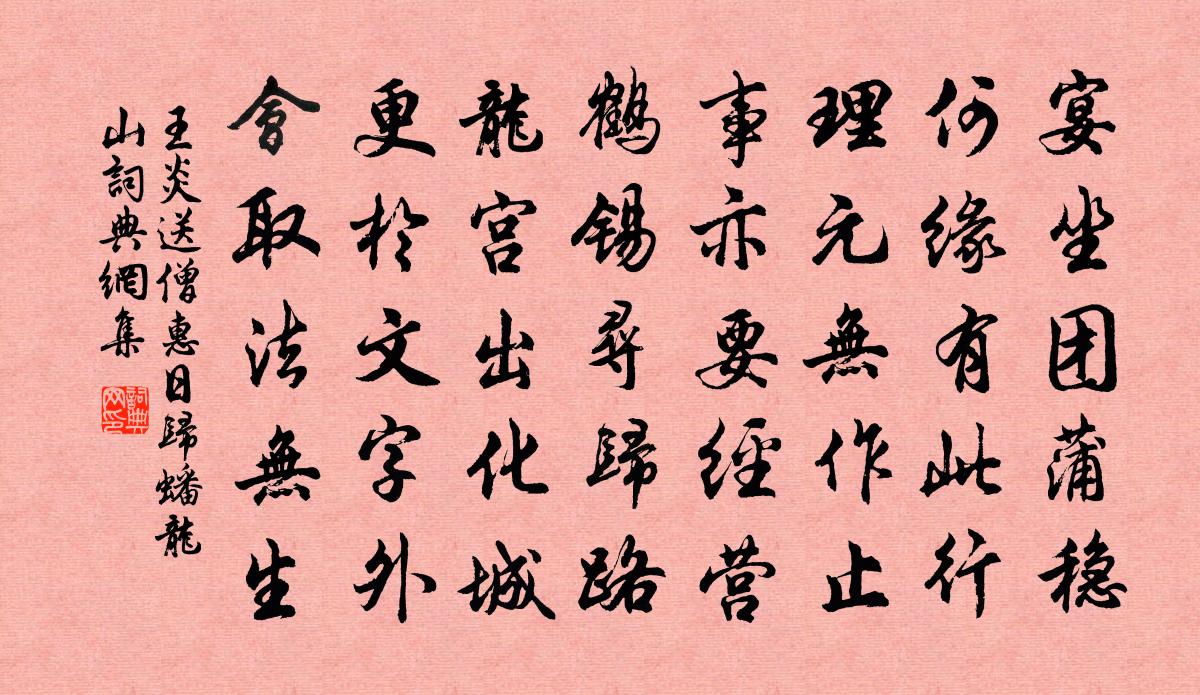 宴坐团蒲稳
何缘有此行
理元無作止
事亦要經营
鶴锡尋歸路
龍宫出化城
更於文字外
會取法無生
王炎送僧惠日歸蟠龍
山詞典網集
詞典
网印